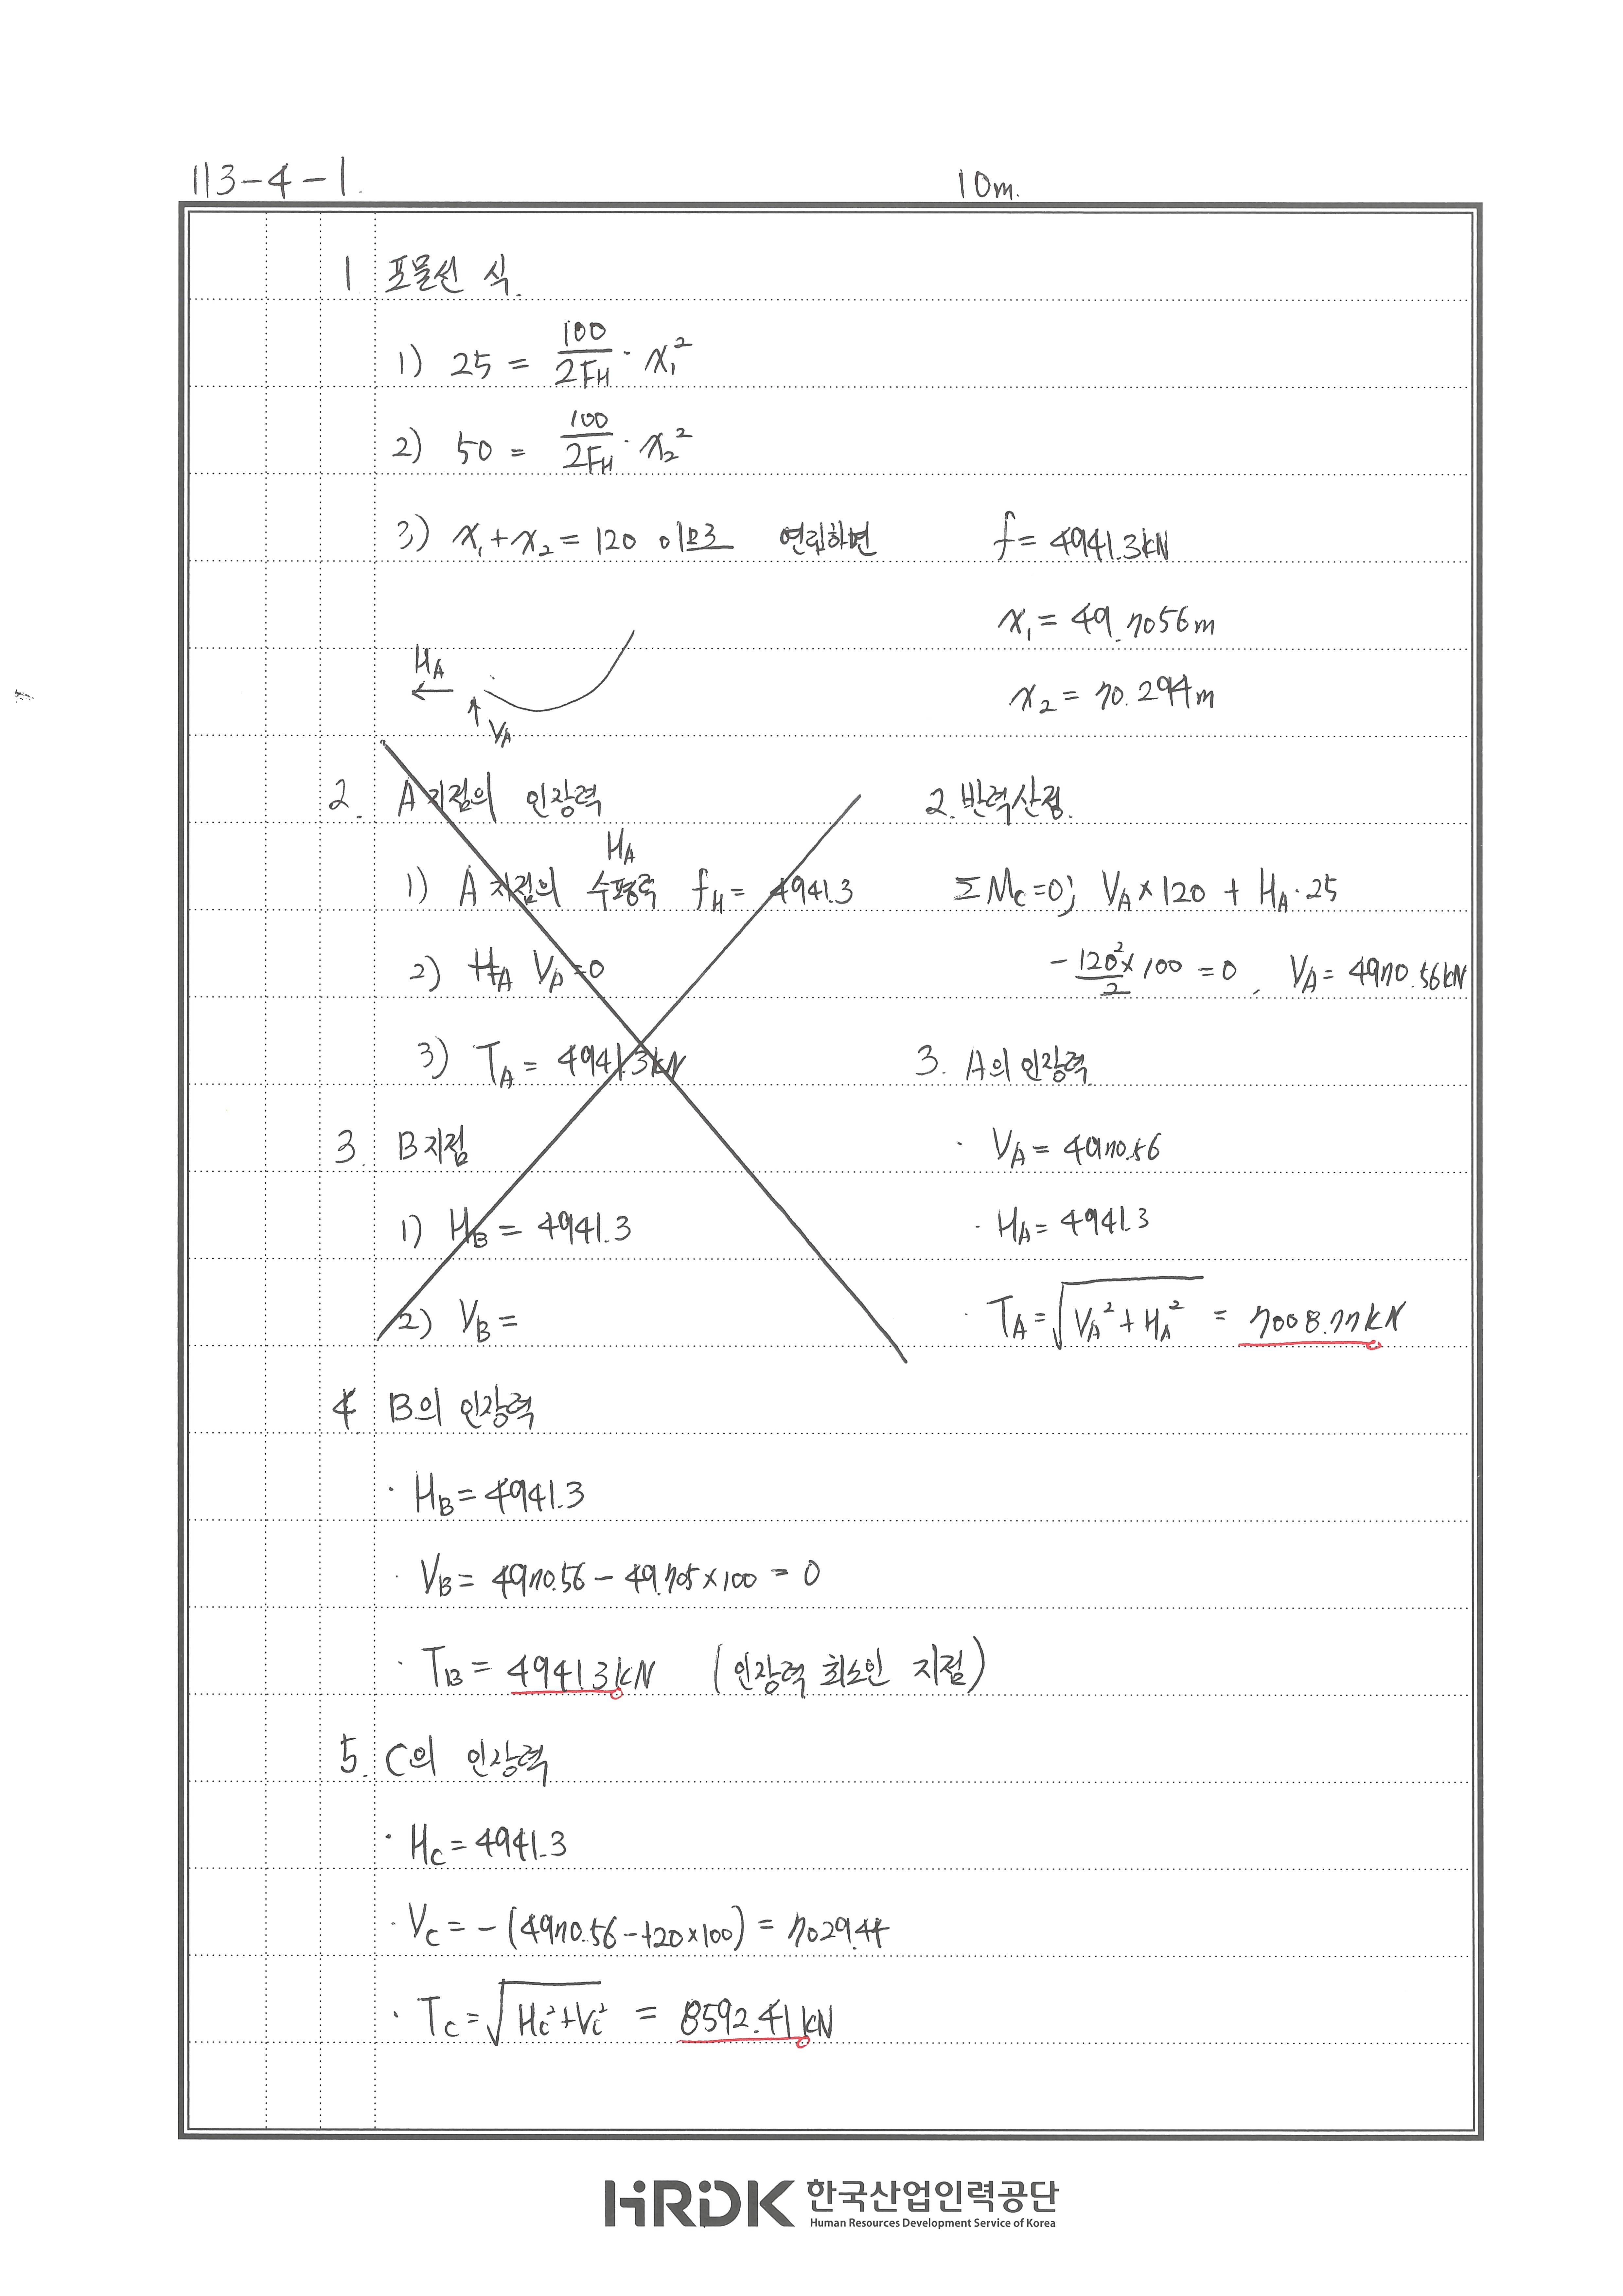 113-4-1.
10m.
1 포물선 식.
1) 25 = 100/2F_H · x₁²
2) 50 = 100/2F_H · x₂²
3) x₁+x₂=120 이므로 연립하면 f= 4941.3kN
x₁ = 49.7056m
H_A
V_A
x₂ = 70.294m
2. A지점의 인장력
H_A
1) A 지점의 수평력 f_H = 4941.3
2) H_A V_A=0
3) T_A = 4941.3kN
3. B지점
1) H_B = 4941.3
2) V_B =
2. 반력산정.
ΣM_C=0; V_A×120 + H_A·25
- 120²/2 × 100 = 0, V_A = 4970.56kN
3. A의 인장력
· V_A = 4970.56
· H_A = 4941.3
· T_A = √(V_A²+H_A²) = 7008.77kN
4 B의 인장력
· H_B = 4941.3
· V_B = 4970.56 - 49.705×100 = 0
· T_B = 4941.3kN (인장력 최소인 지점)
5. C의 인장력
· H_C = 4941.3
· V_C = -(4970.56-120×100) = 7029.44
· T_C = √(H_C²+V_C²) = 8592.41kN
HRDK 한국산업인력공단
Human Resources Development Service of Korea